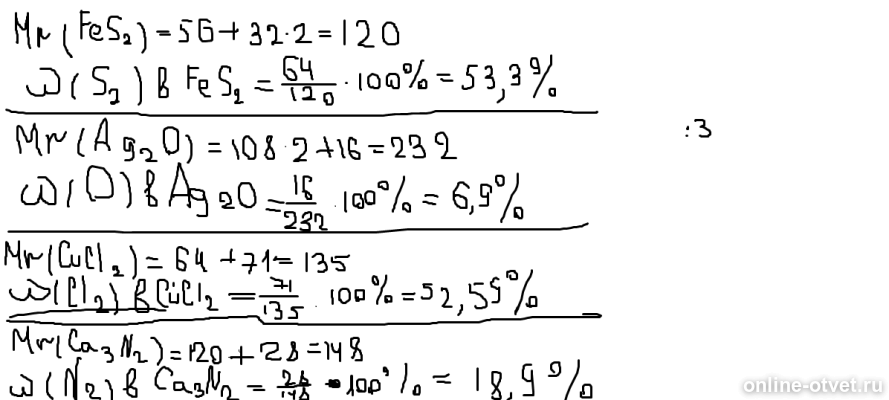 Mr(FeS₂) = 56 + 32·2 = 120
ω(S₂) в FeS₂ = 64/120 · 100% = 53,3%
:3
Mr(Ag₂O) = 108·2 + 16 = 232
ω(O) в Ag₂O = 16/232 · 100% = 6,9%
Mr(CuCl₂) = 64 + 71 = 135
ω(Cl₂) в CuCl₂ = 71/135 · 100% = 52,59%
Mr(Ca₃N₂) = 120 + 28 = 148
ω(N₂) в Ca₃N₂ = 28/148 · 100% = 18,9%
online-otvet.ru